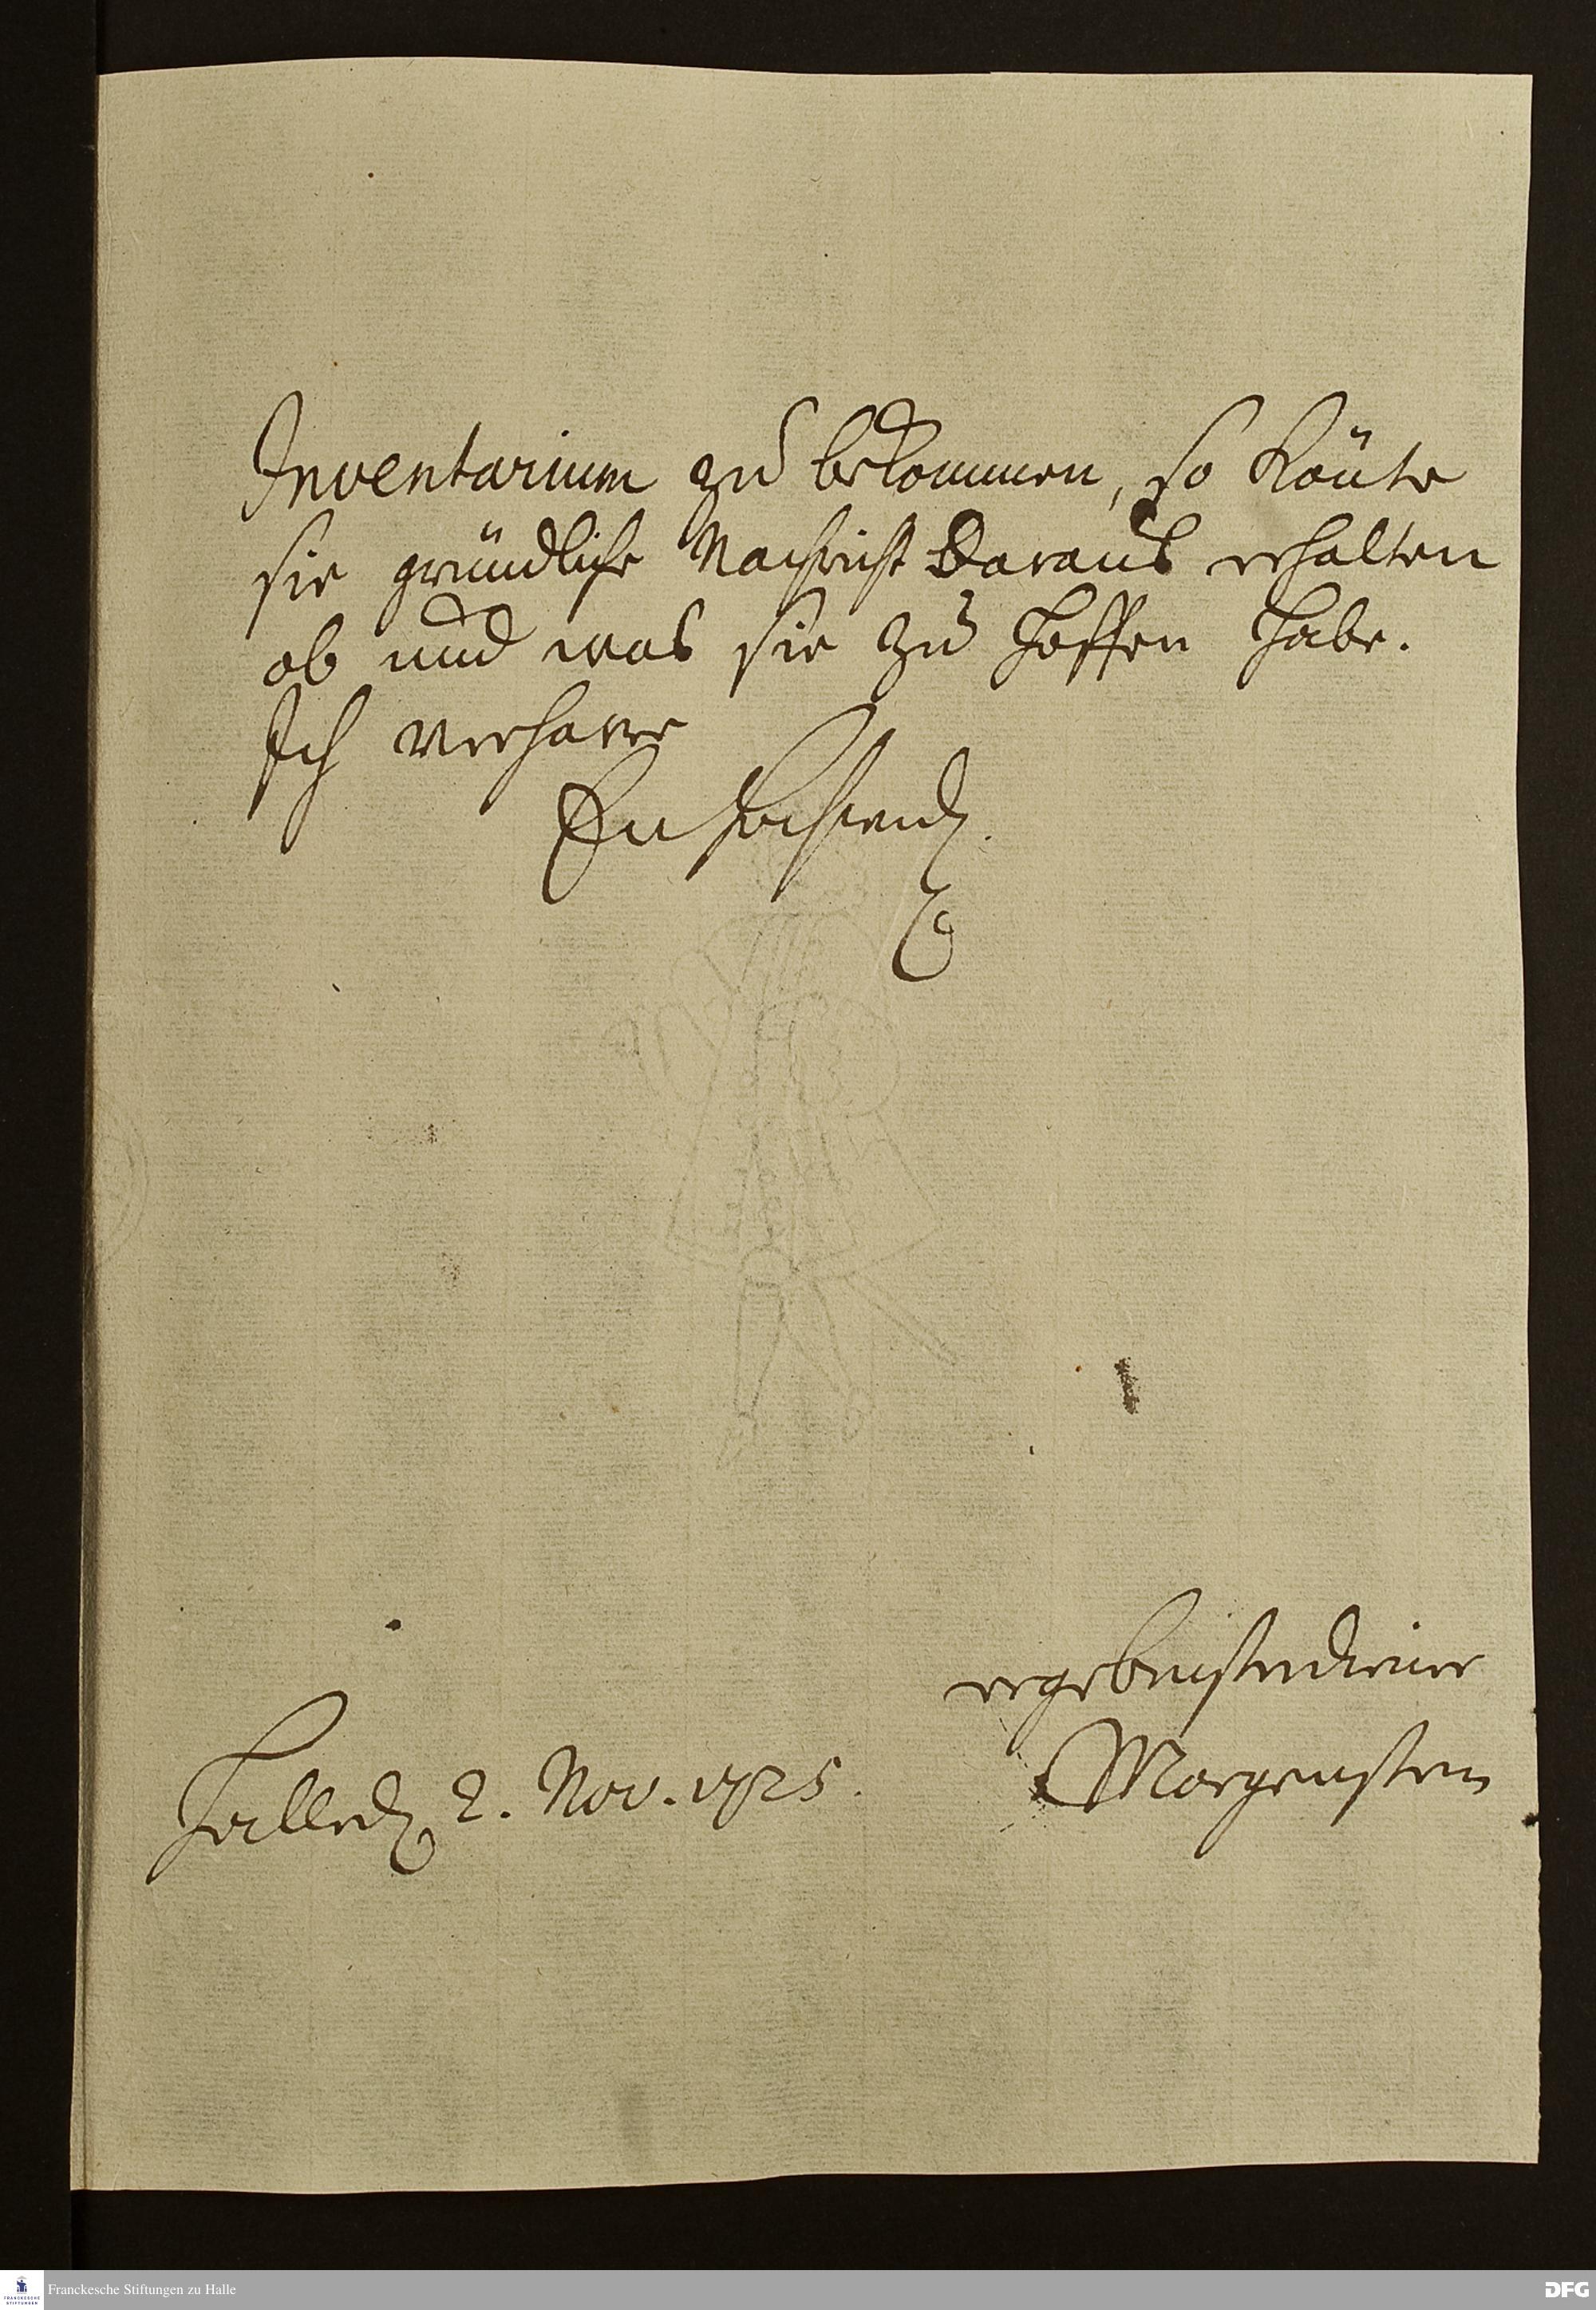 Inventarium zu bekommen, so könte
sie gründliche Nachricht daraus erhalten
ob und was sie zu hoffen habe.
Ich verharre
Ew Hochwürd.
ergebenster diener
Halle d. 2. Nov. 1725.
Morgenstern
Franckesche Stiftungen zu Halle
DFG